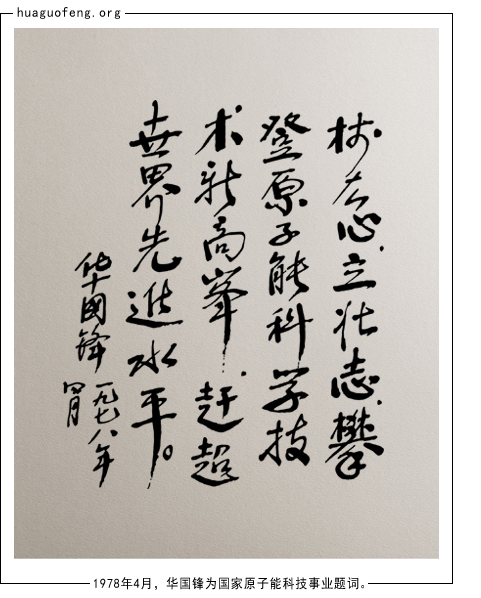 huaguofeng.org
树大心,立壮志,攀
登原子能科学技
术新高峰,赶超
世界先进水平。
华国锋
一九七八年
四月
1978年4月,华国锋为国家原子能科技事业题词。